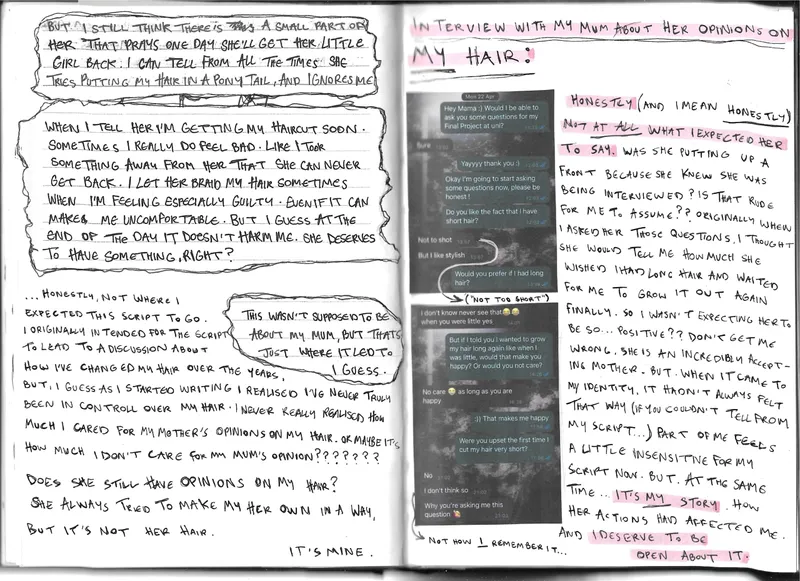 BUT I STILL THINK THERE IS A SMALL PART OF
HER THAT PRAYS ONE DAY SHE'LL GET HER LITTLE
GIRL BACK. I CAN TELL FROM ALL THE TIMES SHE
TRIES PUTTING MY HAIR IN A PONY TAIL, AND IGNORES ME
WHEN I TELL HER I'M GETTING MY HAIRCUT SOON.
SOMETIMES I REALLY DO FEEL BAD. LIKE I TOOK
SOMETHING AWAY FROM HER THAT SHE CAN NEVER
GET BACK. I LET HER BRAID MY HAIR SOMETIMES
WHEN I'M FEELING ESPECIALLY GUILTY. EVEN IF IT CAN
MAKES ME UNCOMFORTABLE. BUT I GUESS AT THE
END OF THE DAY IT DOESN'T HARM ME. SHE DESERVES
TO HAVE SOMETHING, RIGHT?
...HONESTLY, NOT WHERE I
EXPECTED THIS SCRIPT TO GO.
I ORIGINALLY INTENDED FOR THE SCRIPT
TO LEAD TO A DISCUSSION ABOUT
HOW I'VE CHANGED MY HAIR OVER THE YEARS,
BUT, I GUESS AS I STARTED WRITING I REALISED I'VE NEVER TRULY
BEEN IN CONTROLL OVER MY HAIR. I NEVER REALLY REALISED HOW
MUCH I CARED FOR MY MOTHER'S OPINIONS ON MY HAIR. OR MAYBE IT'S
HOW MUCH I DON'T CARE FOR MY MUM'S OPINION???????
THIS WASN'T SUPPOSED TO BE
ABOUT MY MUM, BUT THATS
JUST WHERE IT LED TO
I GUESS.
DOES SHE STILL HAVE OPINIONS ON MY HAIR?
SHE ALWAYS TRIED TO MAKE MY HER OWN IN A WAY,
BUT IT'S NOT HER HAIR.
IT'S MINE.
INTERVIEW WITH MY MUM ABOUT HER OPINIONS ON
MY HAIR:
Mon 22 Apr
Hey Mama :) Would I be able to
ask you some questions for my
Final Project at uni?
Sure
Yayyyy thank you :)
Okay I'm going to start asking
some questions now, please be
honest!
Do you like the fact that I have
short hair?
Not to shot
But I like stylish
Would you prefer if I had long
hair?
("NOT TOO SHORT")
I don't know never see that😂😂
when you were little yes
But if I told you I wanted to grow
my hair long again like when I
was little, would that make you
happy? Or would you not care?
No care 😂 as long as you are
happy
:)) That makes me happy
Were you upset the first time I
cut my hair very short?
No
I don't think so
Why you're asking me this
question
NOT HOW I REMEMBER IT...
HONESTLY (AND I MEAN HONESTLY)
NOT AT ALL WHAT I EXPECTED HER
TO SAY. WAS SHE PUTTING UP A
FRONT BECAUSE SHE KNEW SHE WAS
BEING INTERVIEWED? IS THAT RUDE
FOR ME TO ASSUME?? ORIGINALLY WHEN
I ASKED HER THOSE QUESTIONS, I THOUGHT
SHE WOULD TELL ME HOW MUCH SHE
WISHED I HAD LONG HAIR AND WAITED
FOR ME TO GROW IT OUT AGAIN
FINALLY. SO I WASN'T EXPECTING HER TO
BE SO... POSITIVE?? DON'T GET ME
WRONG. SHE IS AN INCREDIBLY ACCEPT-
ING MOTHER. BUT. WHEN IT CAME TO
MY IDENTITY, IT HADN'T ALWAYS FELT
THAT WAY (IF YOU COULDN'T TELL FROM
MY SCRIPT...) PART OF ME FEELS
A LITTLE INSENSITIVE FOR MY
SCRIPT NOW. BUT. AT THE SAME
TIME... IT'S MY STORY. HOW
HER ACTIONS HAD AFFECTED ME.
AND I DESERVE TO BE
OPEN ABOUT IT.